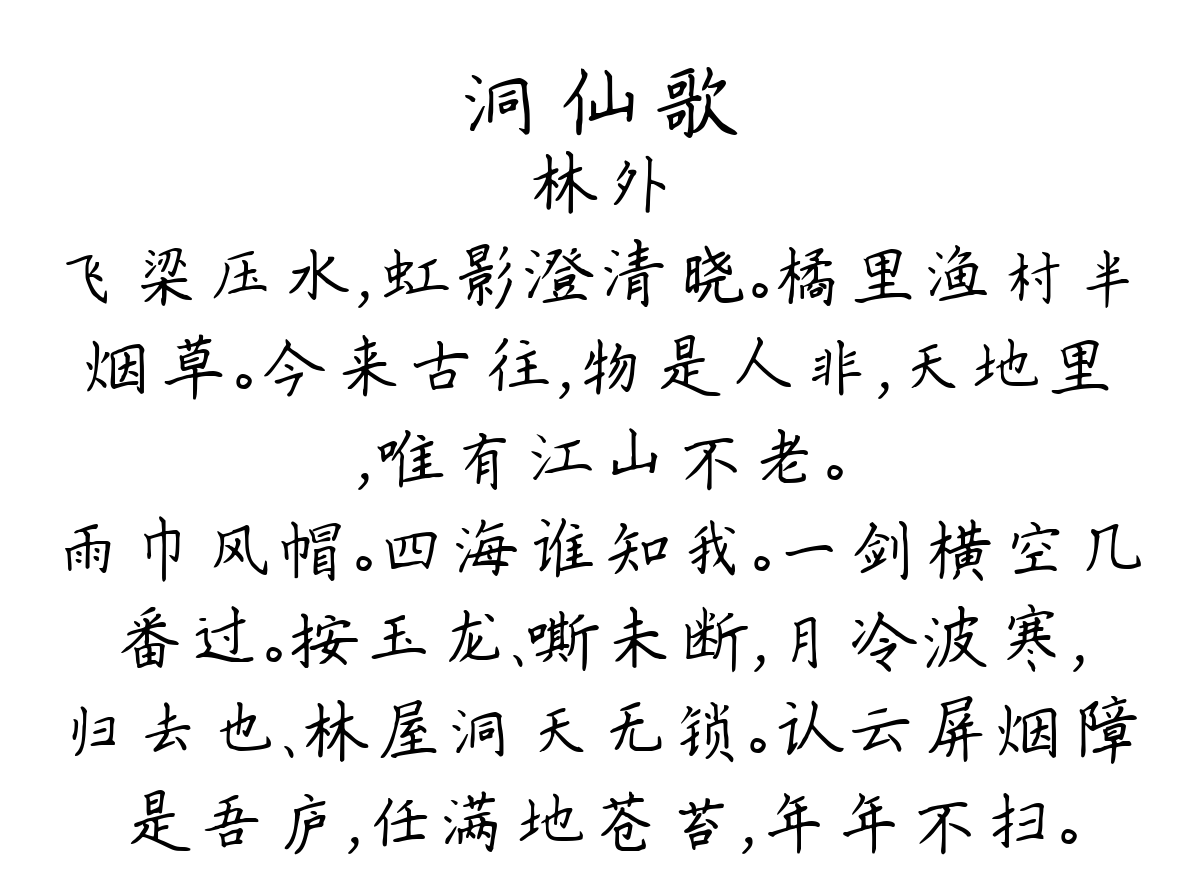 洞仙歌
林外
飞梁压水,虹影澄清晓。橘里渔村半
烟草。今来古往,物是人非,天地里
,唯有江山不老。
雨巾风帽。四海谁知我。一剑横空几
番过。按玉龙、嘶未断,月冷波寒,
归去也、林屋洞天无锁。认云屏烟障
是吾庐,任满地苍苔,年年不扫。